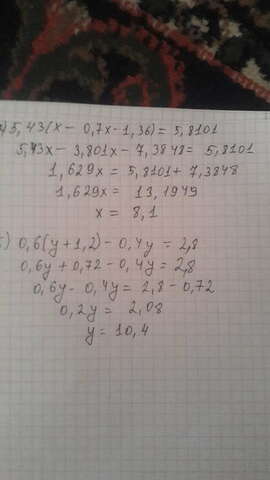 а) 5,43(x - 0,7x - 1,36) = 5,8101
5,43x - 3,801x - 7,3848 = 5,8101
1,629x = 5,8101 + 7,3848
1,629x = 13,1949
x = 8,1
б) 0,6(y + 1,2) - 0,4y = 2,8
0,6y + 0,72 - 0,4y = 2,8
0,6y - 0,4y = 2,8 - 0,72
0,2y = 2,08
y = 10,4